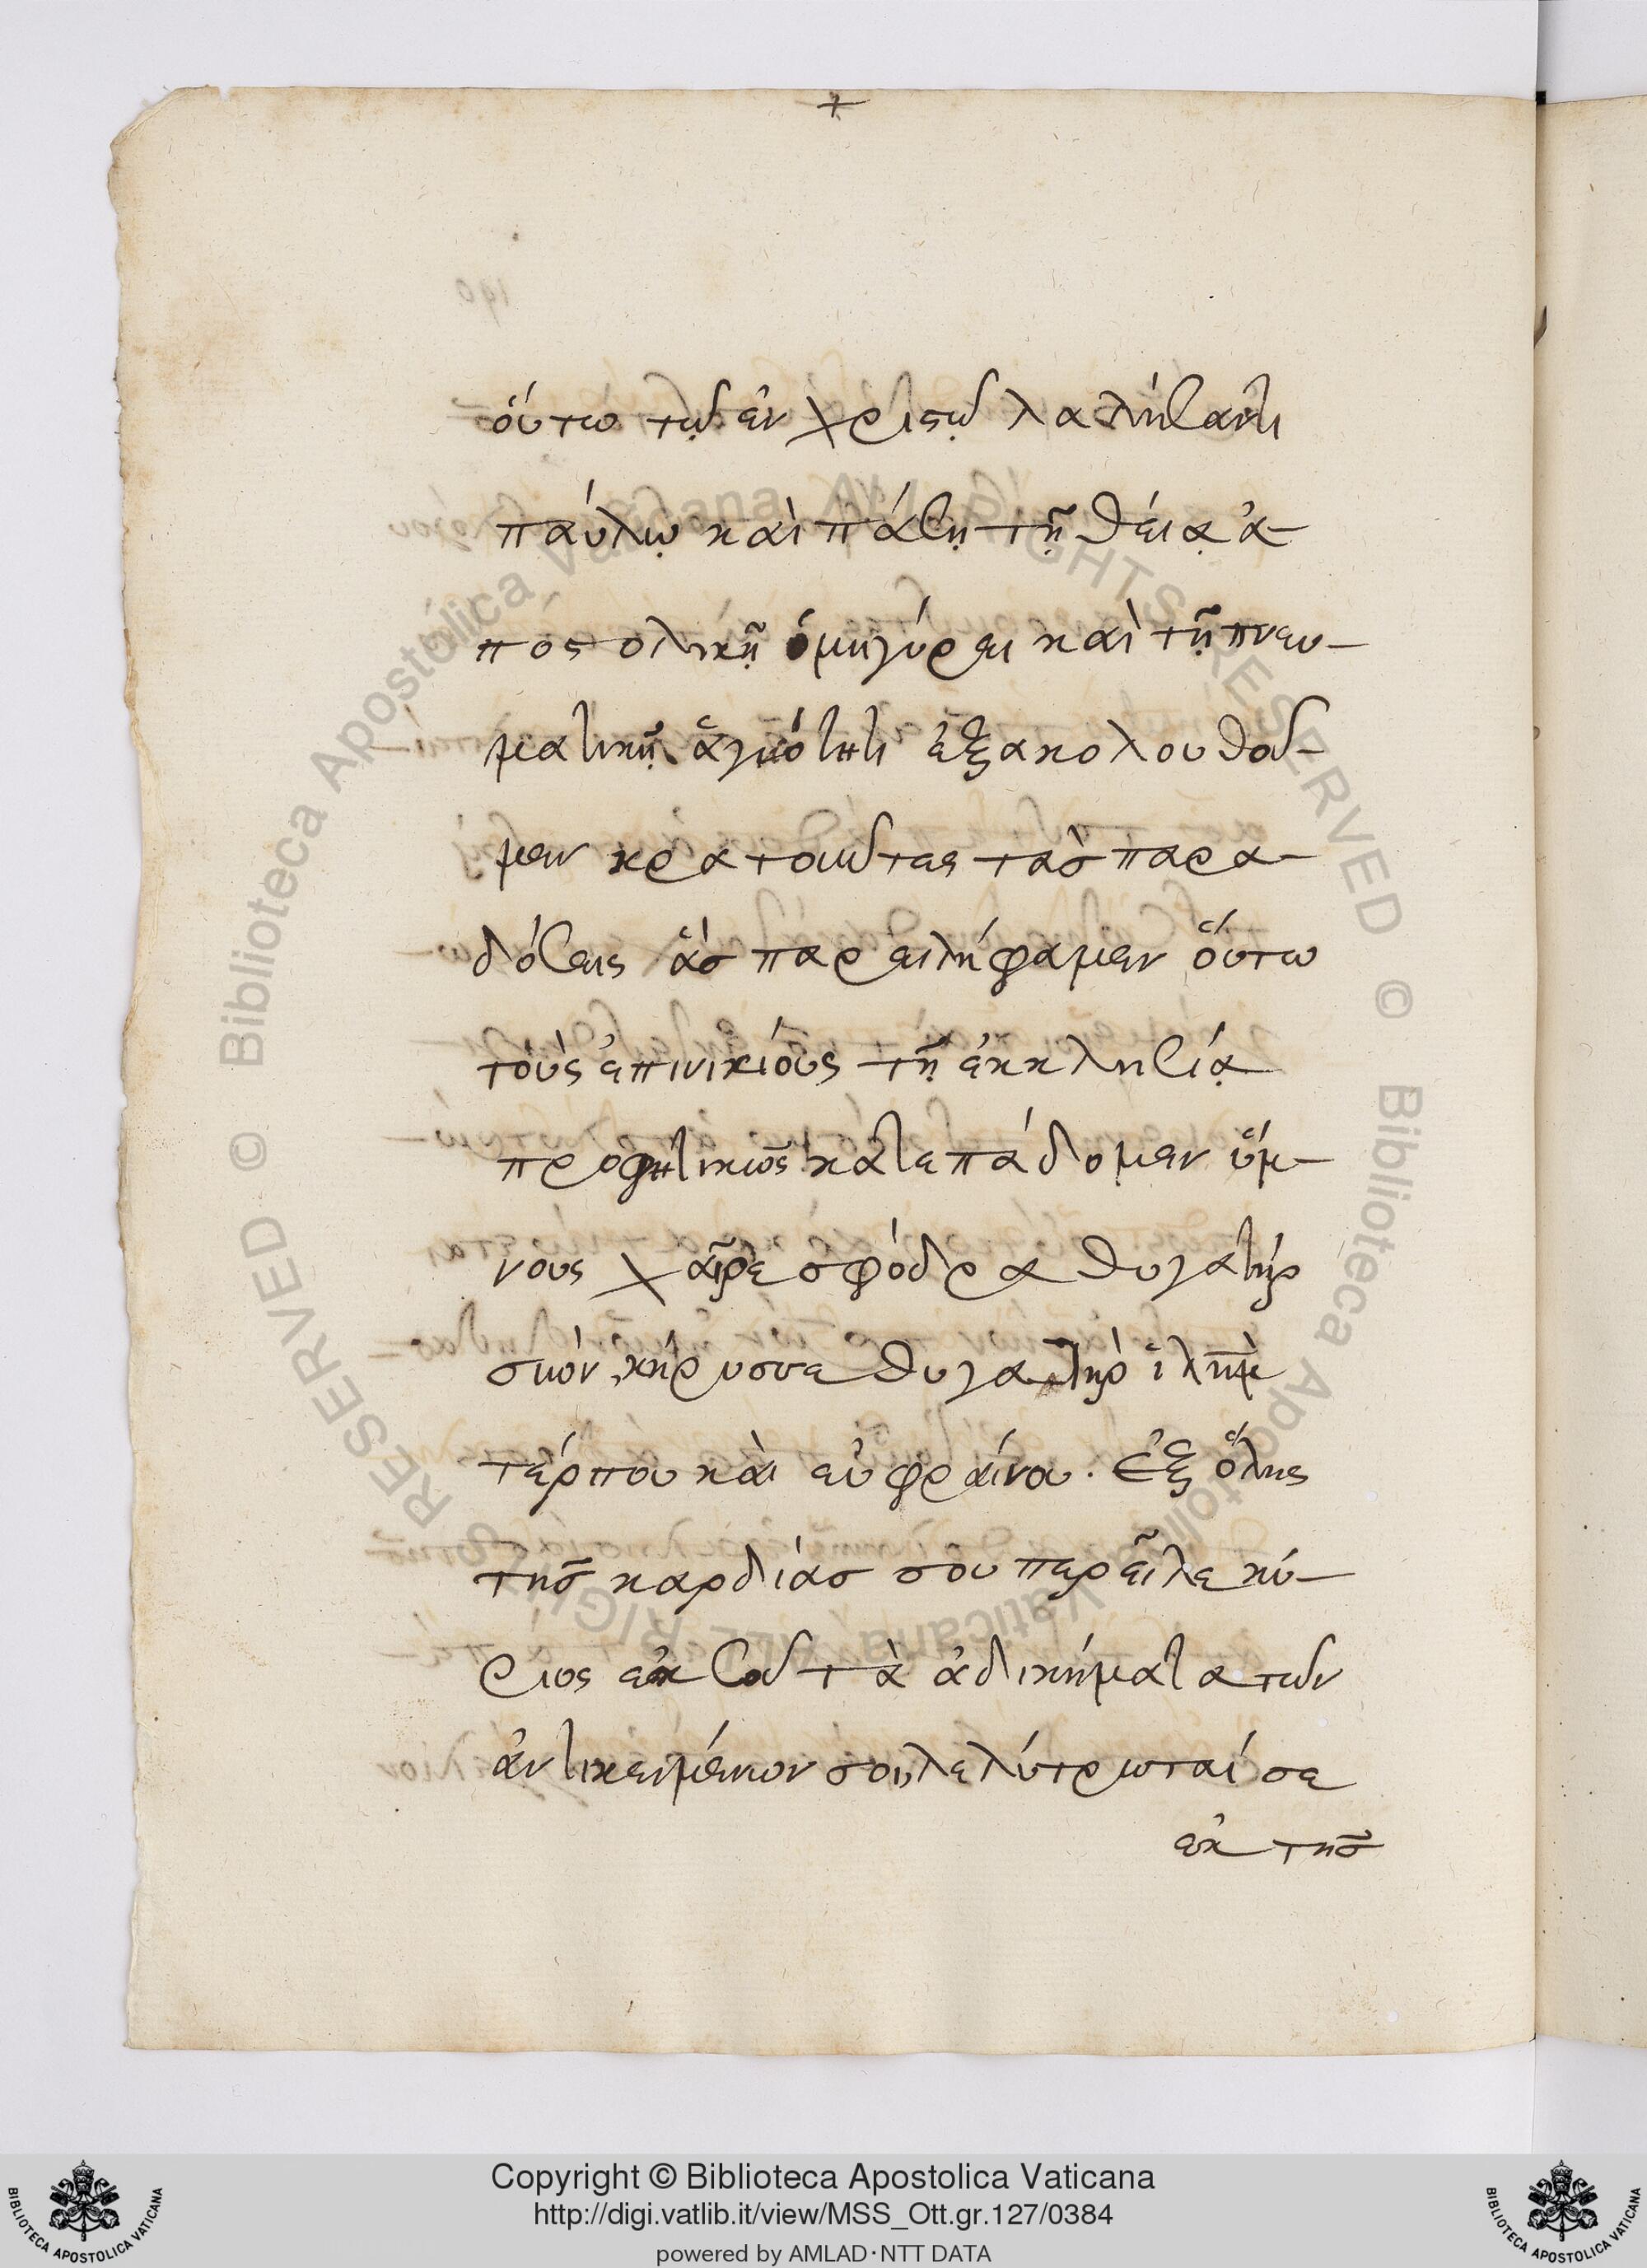 +
ὁύτω τῷ ἐν χριστῷ λαλήσαντι
παύλῳ καὶ πάσῃ τῇ θείᾳ ἀ-
ποστολικῇ ὁμηγύρει καὶ τῇ πνευ-
ματικῇ ἁγιότητι ἐξακολουθοῦ-
μεν κρατοῦντες τὰσ παρα-
δόσεις ἃσ παρειλήφαμεν ὅυτω
τοὺς ἐπινικίους τῇ ἐκκλησίᾳ
προφητικῶς κατεπάδομεν ὕμ-
νους χαῖρε σφόδρα θυγατὴρ
σιών, κήρυσσε θυγατὴρ ἱλημ
τέρπου καὶ εὐφραίνου. ἐξ ὅλης
τῆσ καρδίασ σου περιεῖλε κύ-
ριος ἐκ σοῦ τὰ ἀδικήματα τῶν
ἀντικειμένων σοι, λελύτρωταί σε
ἐκ τῆσ
Biblioteca Apostolica Vaticana ALL RIGHTS RESERVED ©
Biblioteca Apostolica Vaticana ALL RIGHTS RESERVED ©
Copyright © Biblioteca Apostolica Vaticana
http://digi.vatlib.it/view/MSS_Ott.gr.127/0384
powered by AMLAD·NTT DATA
BIBLIOTECA APOSTOLICA VATICANA
BIBLIOTECA APOSTOLICA VATICANA